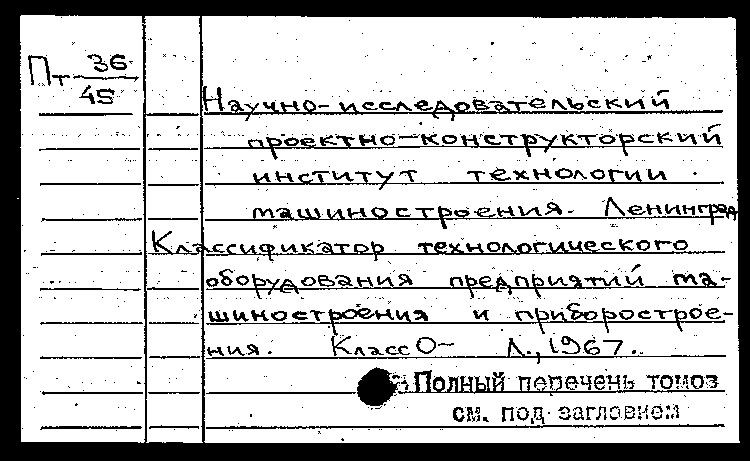 Пт 36
45
Научно-исследовательский
проектно-конструкторский
институт технологии
машиностроения. Ленинград
Классификатор технологического
оборудования предприятий ма-
шиностроения и приборострое-
ния. Класс О- Л., 1967.
Полный перечень томов
см. под заглавием